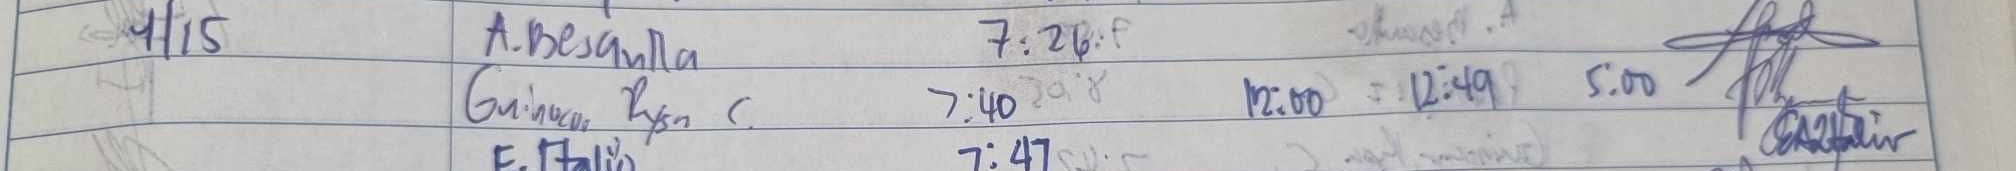 4/15 A. Besanlla 7:26
Guinocor, Rysn C. 7:40 12:00 12:49 5:00
E. Italio 7:47